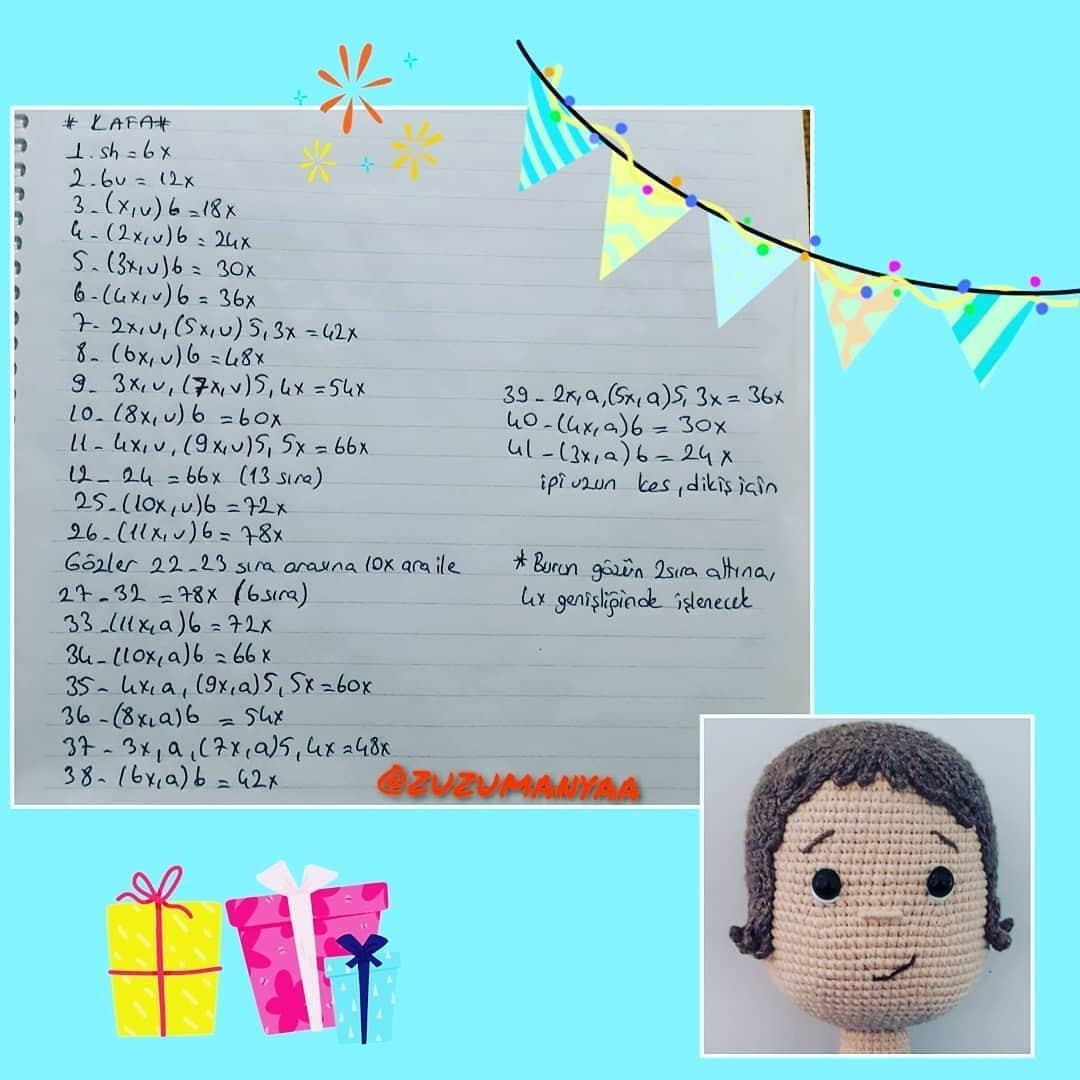 # KAFA#
1. sh = 6x
2. 6v = 12x
3 - (x,v) 6 = 18x
4 - (2x,v) 6 = 24x
5 - (3x,v) 6 = 30x
6 - (4x,v) 6 = 36x
7 - 2x,v, (5x,v) 5, 3x = 42x
8 - (6x,v) 6 = 48x
9 - 3x,v, (7x,v) 5, 4x = 54x
10 - (8x,v) 6 = 60x
11 - 4x,v, (9x,v) 5, 5x = 66x
12 - 24 = 66x (13 sıra)
25 - (10x,v) 6 = 72x
26 - (11x,v) 6 = 78x
Gözler 22-23 sıra arasına 10x ara ile
27 - 32 = 78x (6 sıra)
33 - (11x,a) 6 = 72x
34 - (10x,a) 6 = 66x
35 - 4x,a, (9x,a) 5, 5x = 60x
36 - (8x,a) 6 = 54x
37 - 3x,a, (7x,a) 5, 4x = 48x
38 - (6x,a) 6 = 42x
39 - 2x,a, (5x,a) 5, 3x = 36x
40 - (4x,a) 6 = 30x
41 - (3x,a) 6 = 24x
ipi uzun kes, dikiş için
* Burun gözün 2 sıra altına,
4x genişliğinde işlenecek
@ZUZUMANYAA